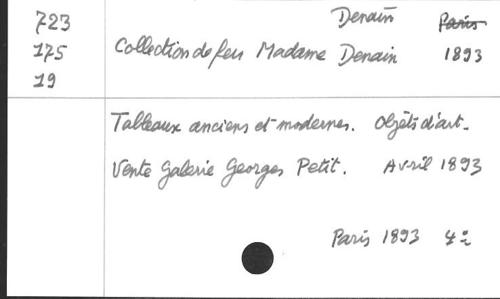 723 Denain Paris
175 Collection de feu Madame Denain 1893
19
Tableaux anciens et modernes. Objets d'art.
Vente Galerie Georges Petit. Avril 1893
Paris 1893 4°